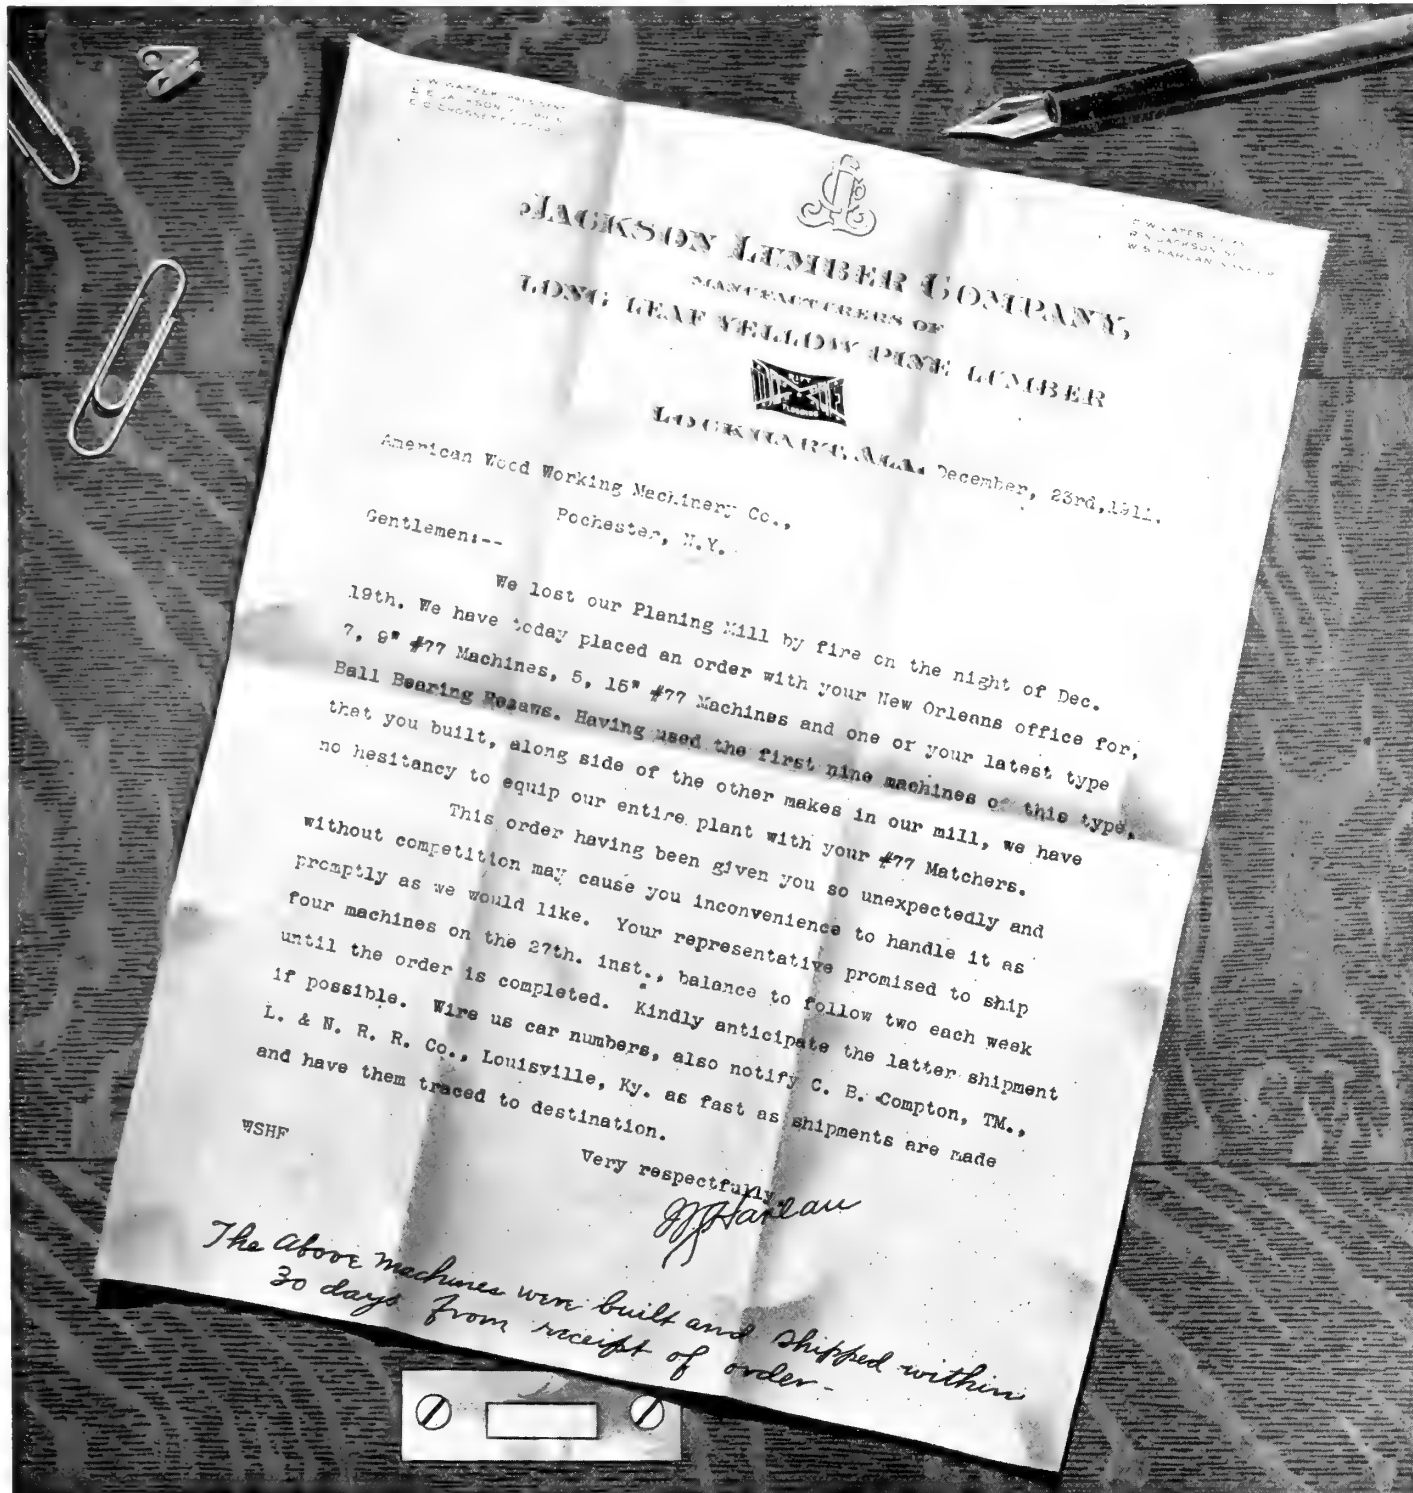 E. E. JACKSON
JACKSON LUMBER COMPANY,
MANUFACTURERS OF
LONG LEAF YELLOW PINE LUMBER
RIFT
FLOORING
LOCKHART, ALA. December, 23rd,1911.
American Wood Working Machinery Co.,
Pochester, N.Y.
Gentlemen:--
We lost our Planing Mill by fire on the night of Dec.
19th. We have today placed an order with your New Orleans office for,
7, 9" #77 Machines, 5, 15" #77 Machines and one or your latest type
Ball Bearing Resaws. Having used the first nine machines of this type,
that you built, along side of the other makes in our mill, we have
no hesitancy to equip our entire plant with your #77 Matchers.
This order having been given you so unexpectedly and
without competition may cause you inconvenience to handle it as
promptly as we would like. Your representative promised to ship
four machines on the 27th. inst., balance to follow two each week
until the order is completed. Kindly anticipate the latter shipment
if possible. Wire us car numbers, also notify C. B. Compton, TM.,
L. & N. R. R. Co., Louisville, Ky. as fast as shipments are made
and have them traced to destination.
WSHF
Very respectfully,
Harlan
The above machines were built and shipped within
30 days from receipt of order-